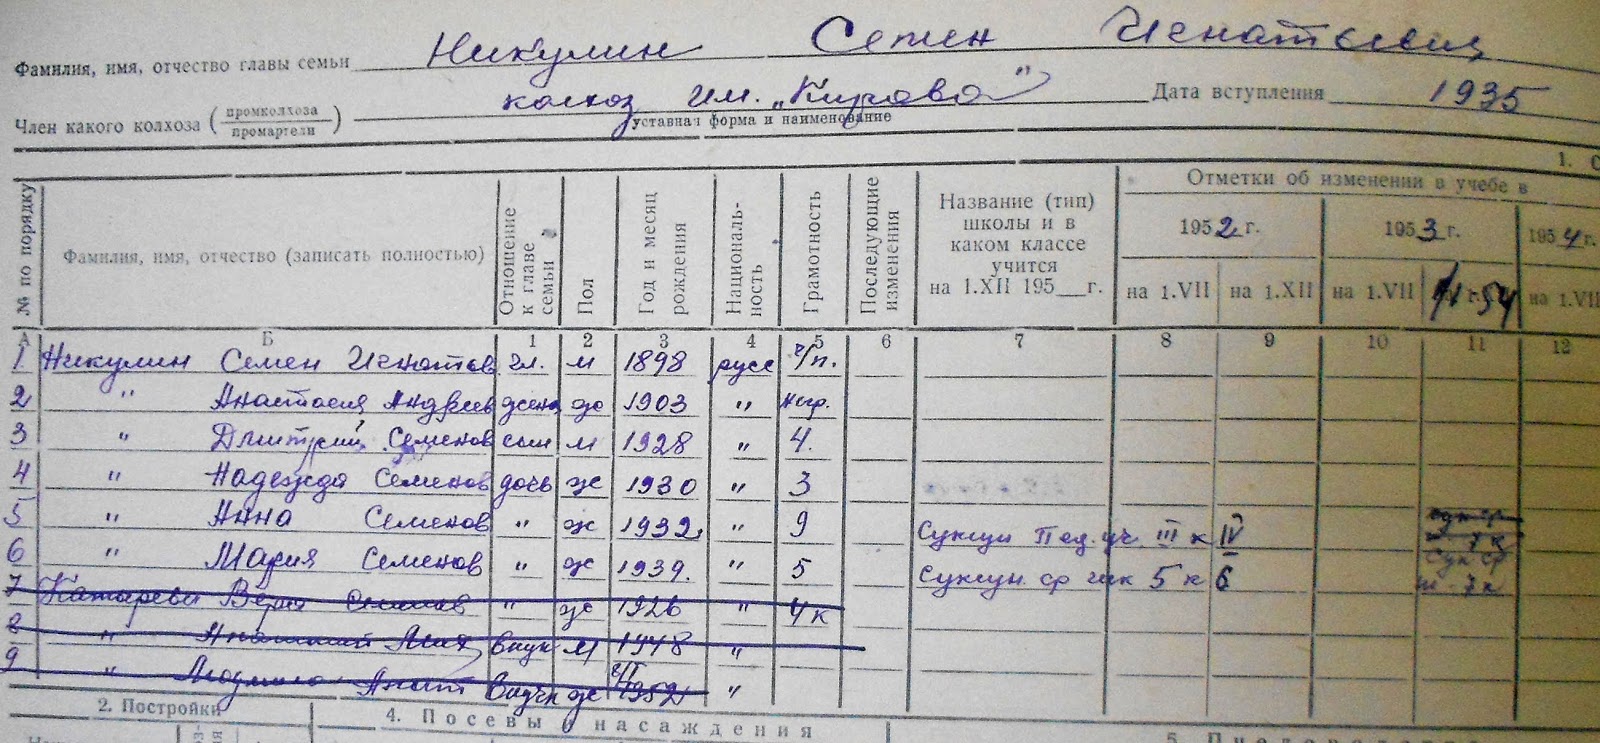 Фамилия, имя, отчество главы семьи Никулин Семен Игнатьевич
Член какого колхоза (промколхоза промартели) колхоз им. „Кирова" Дата вступления 1935
уставная форма и наименование
1. С
№ по порядку Фамилия, имя, отчество (записать полностью) Отношение к главе семьи Пол Год и месяц рождения Националь-ность Грамотность Последующие изменения Название (тип) школы и в каком классе учится на 1.XII 195 г. Отметки об изменении в учебе в
1952 г. 1953 г. 1954 г.
на 1.VII на 1.XII на 1.VII 54 на 1.VII
А Б 1 2 3 4 5 6 7 8 9 10 11 12
1 Никулин Семен Игнатов гл. м 1898 русс ч/п.
2 " Анастасия Андреев жена ж 1903 " негр.
3 " Дмитрий Семенов сын м 1928 " 4.
4 " Надежда Семенов дочь ж 1930 " 3
5 " Анна Семенов " ж 1932 " 9 Суксун Пед. уч. III к IV
6 " Мария Семенов " ж 1939. " 5 Суксун. ср шк 5 к 6 Сук ср ш - 7 к
7 Вера Семенов " ж 1926 " 4 к
8 " внук м 1948 "
9 " Людмила Анат внучк ж 1952 "
2. Постройки 4. Посевы и насаждения